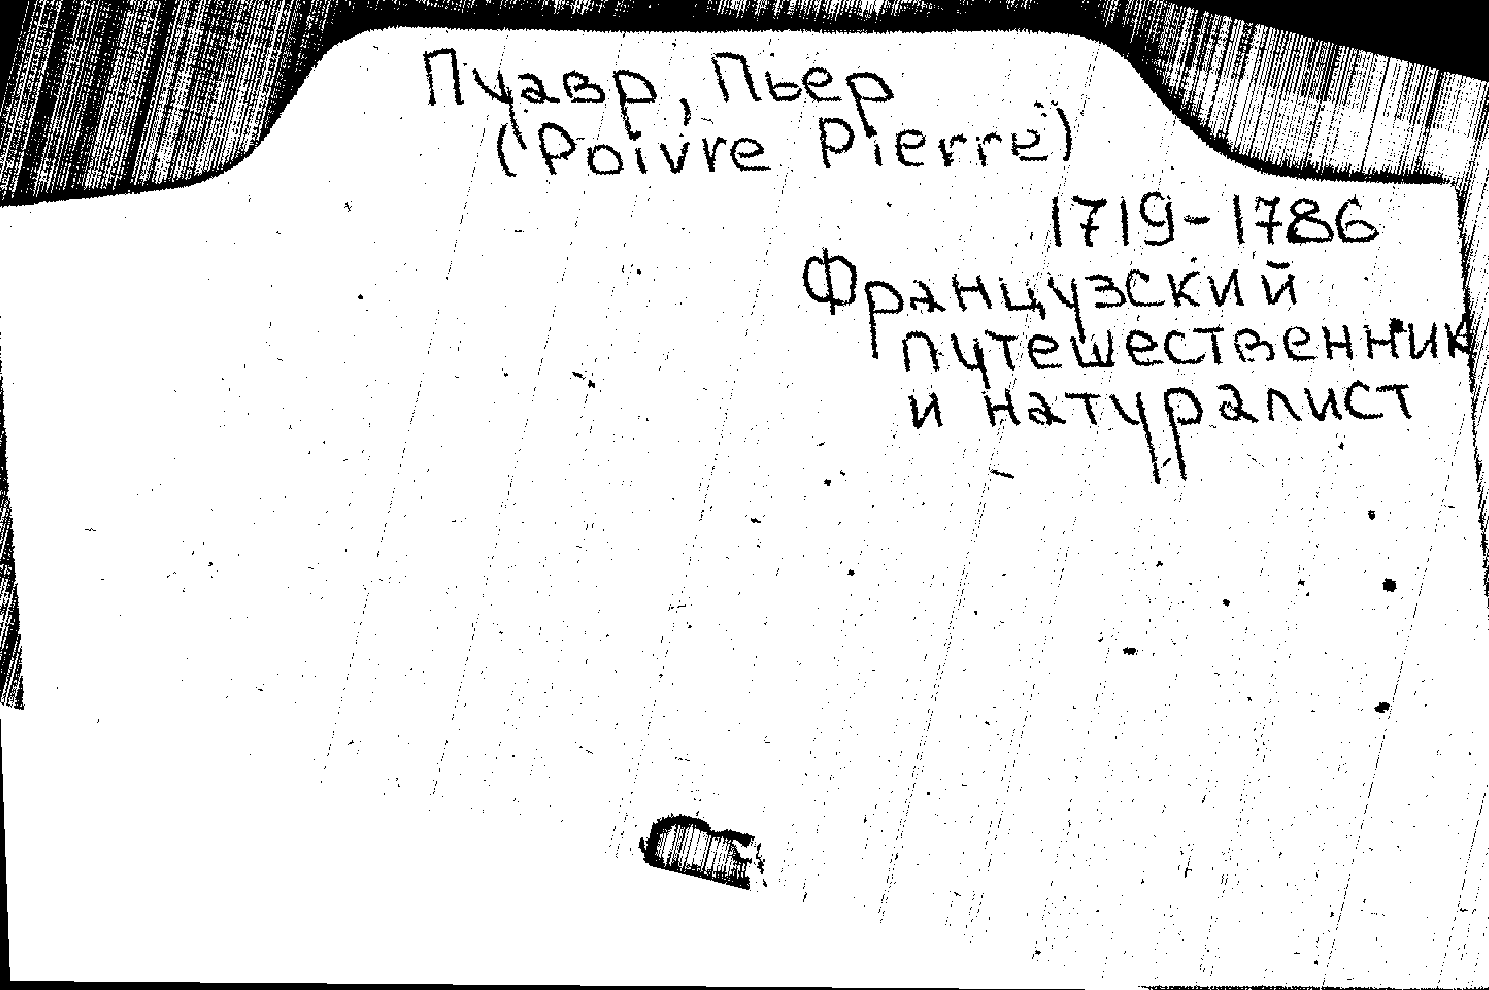 Пуавр, Пьер
(Poivre Pierre)
1719-1786
Французский
путешественник
и натуралист